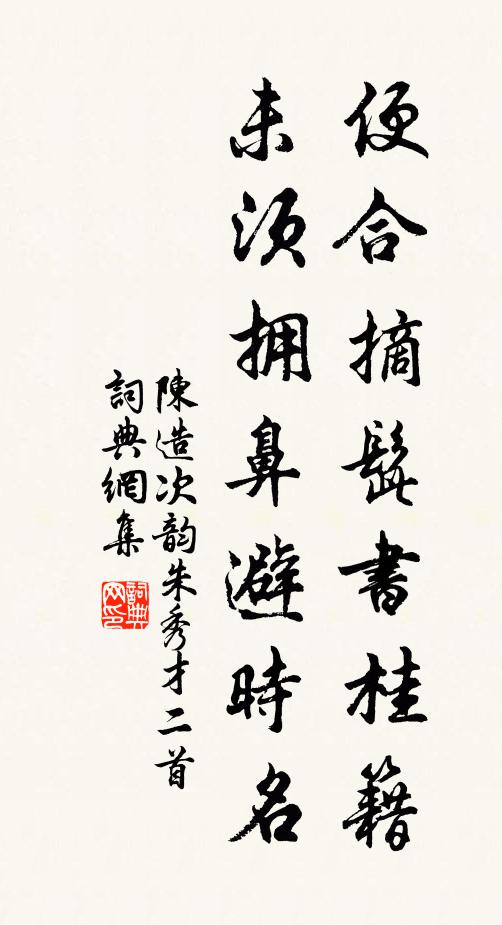 便合摘髭書桂籍
未須拥鼻避時名
陳造次韵朱秀才二首
詞典網集
詞典
网印